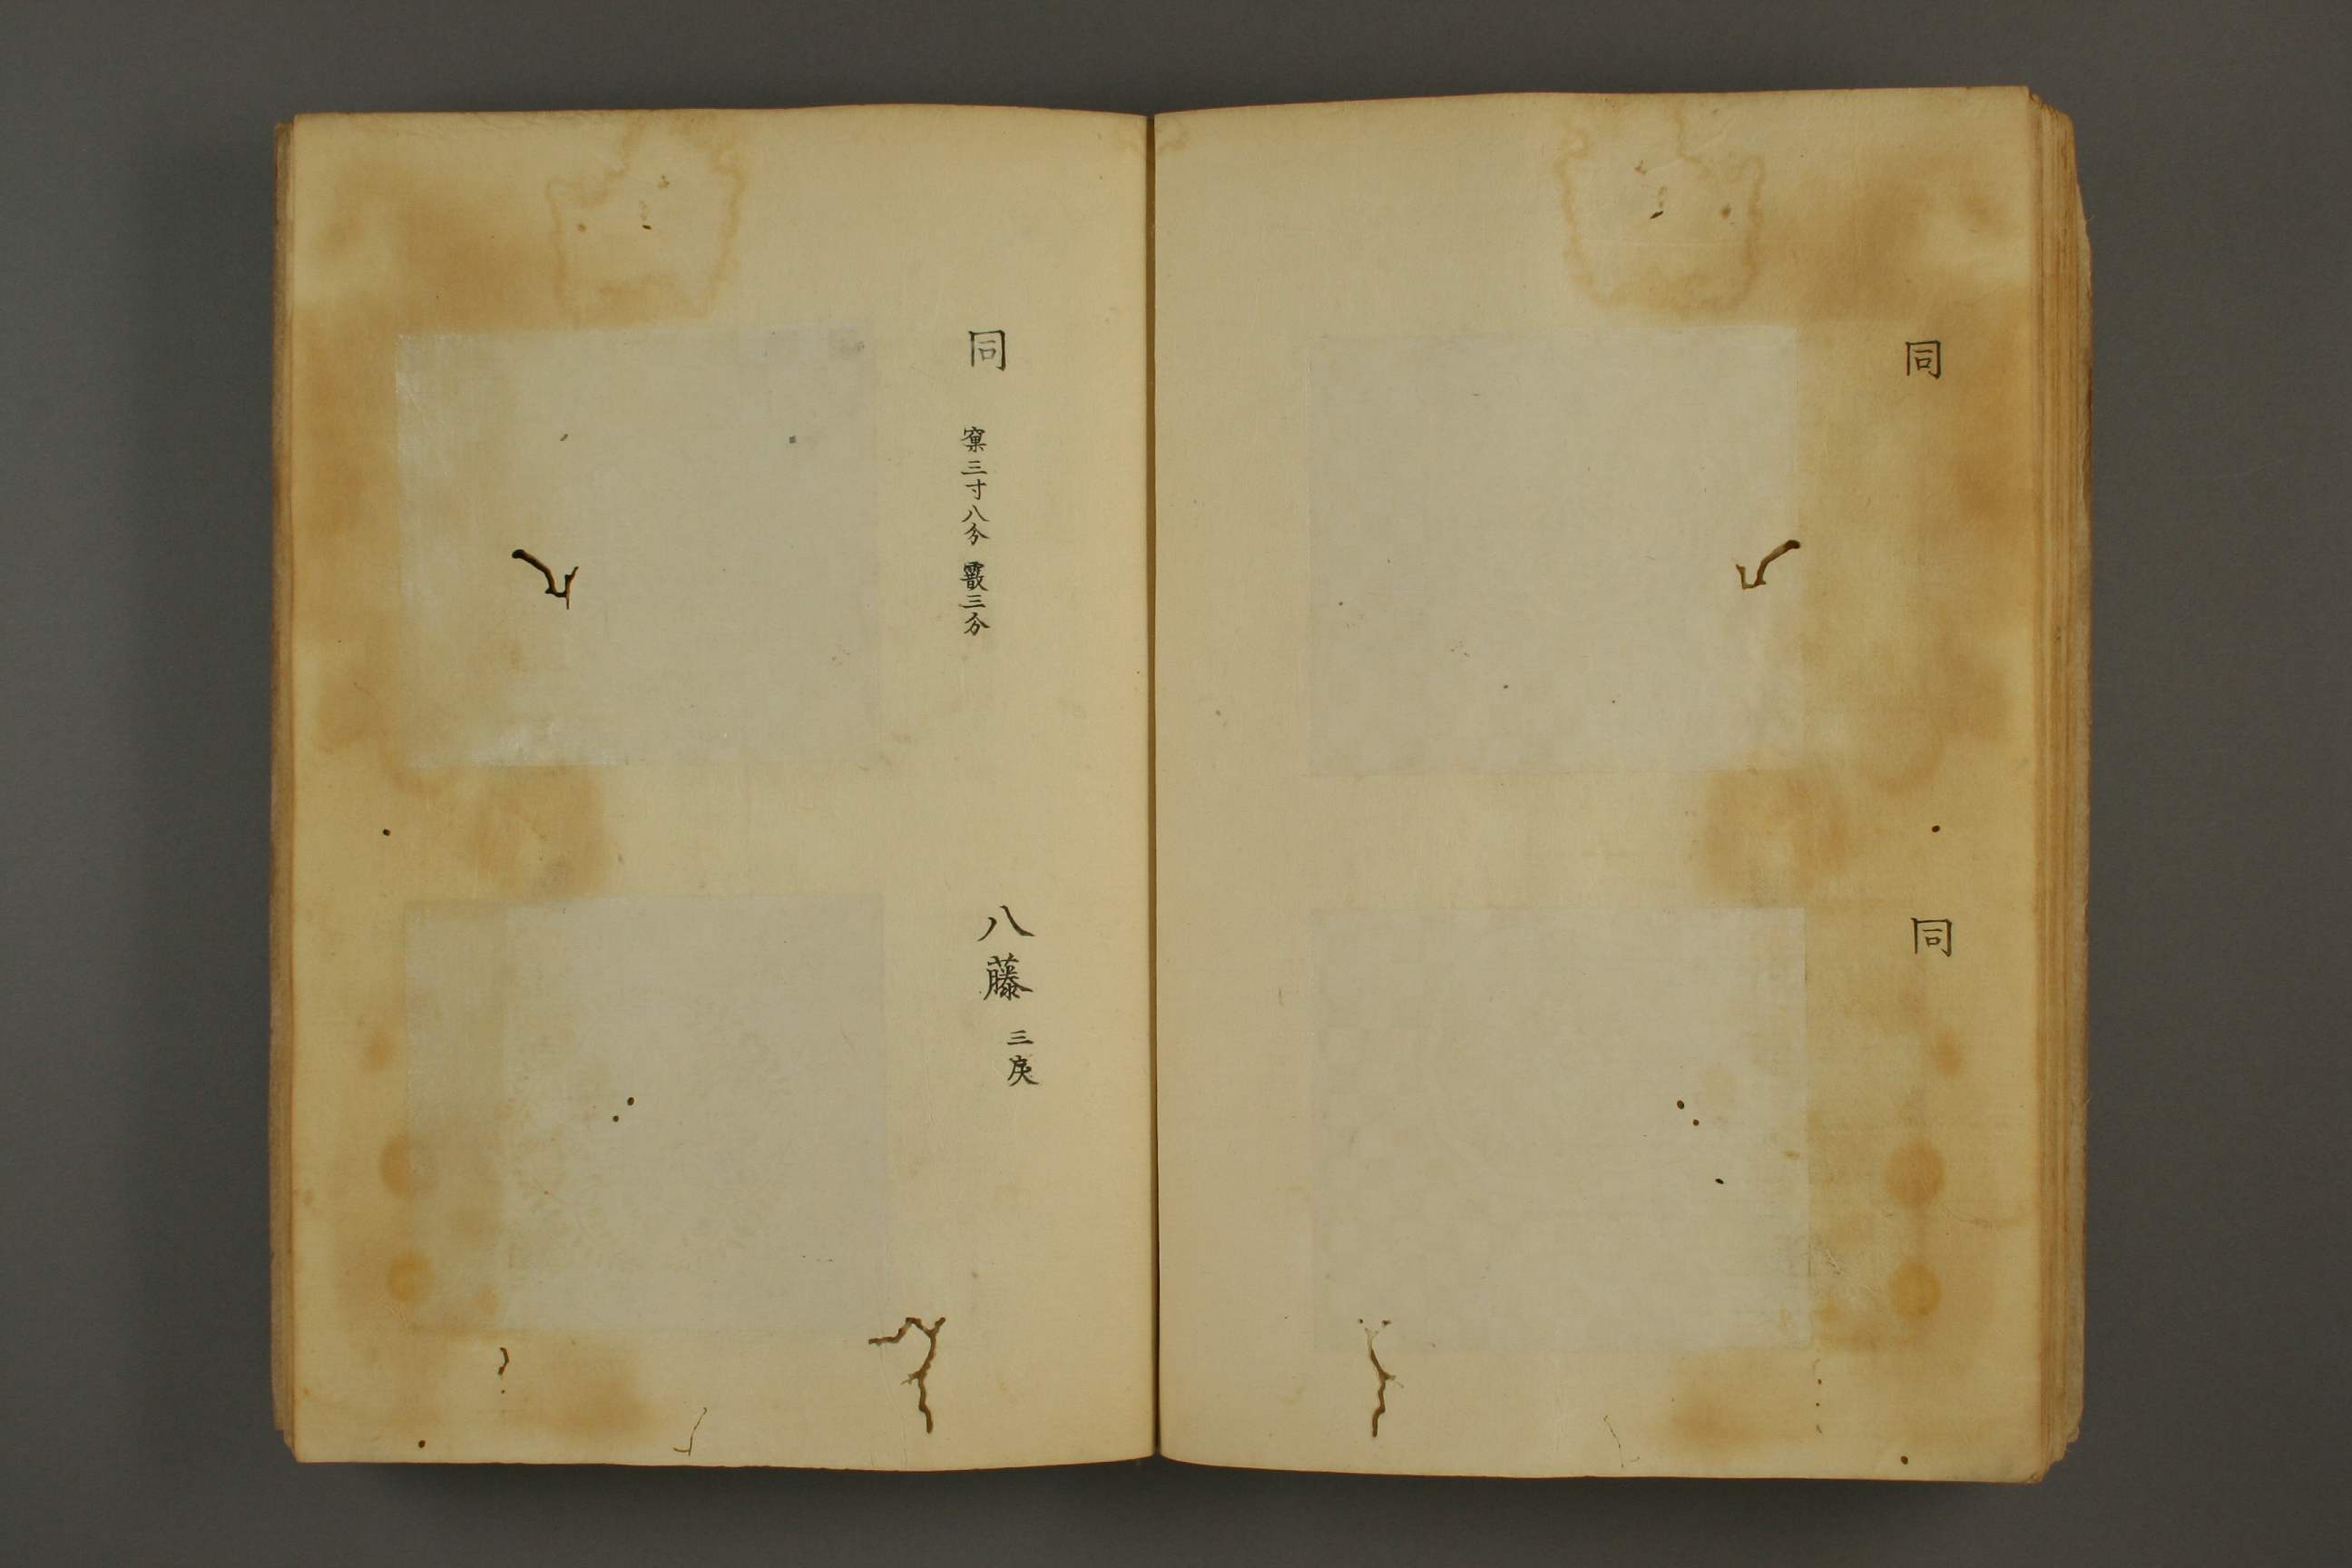 同
同
同 窠三寸八分 霰三分
八藤 三戻